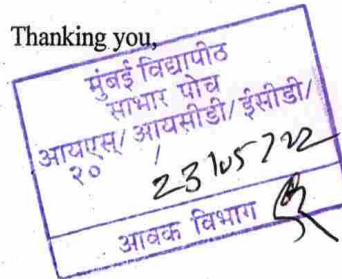 Thanking you,
मुंबई विद्यापीठ
साभार पोच
आयएस/ आयसीडी/ ईसीडी/
२० /
23/05/22
आवक विभाग